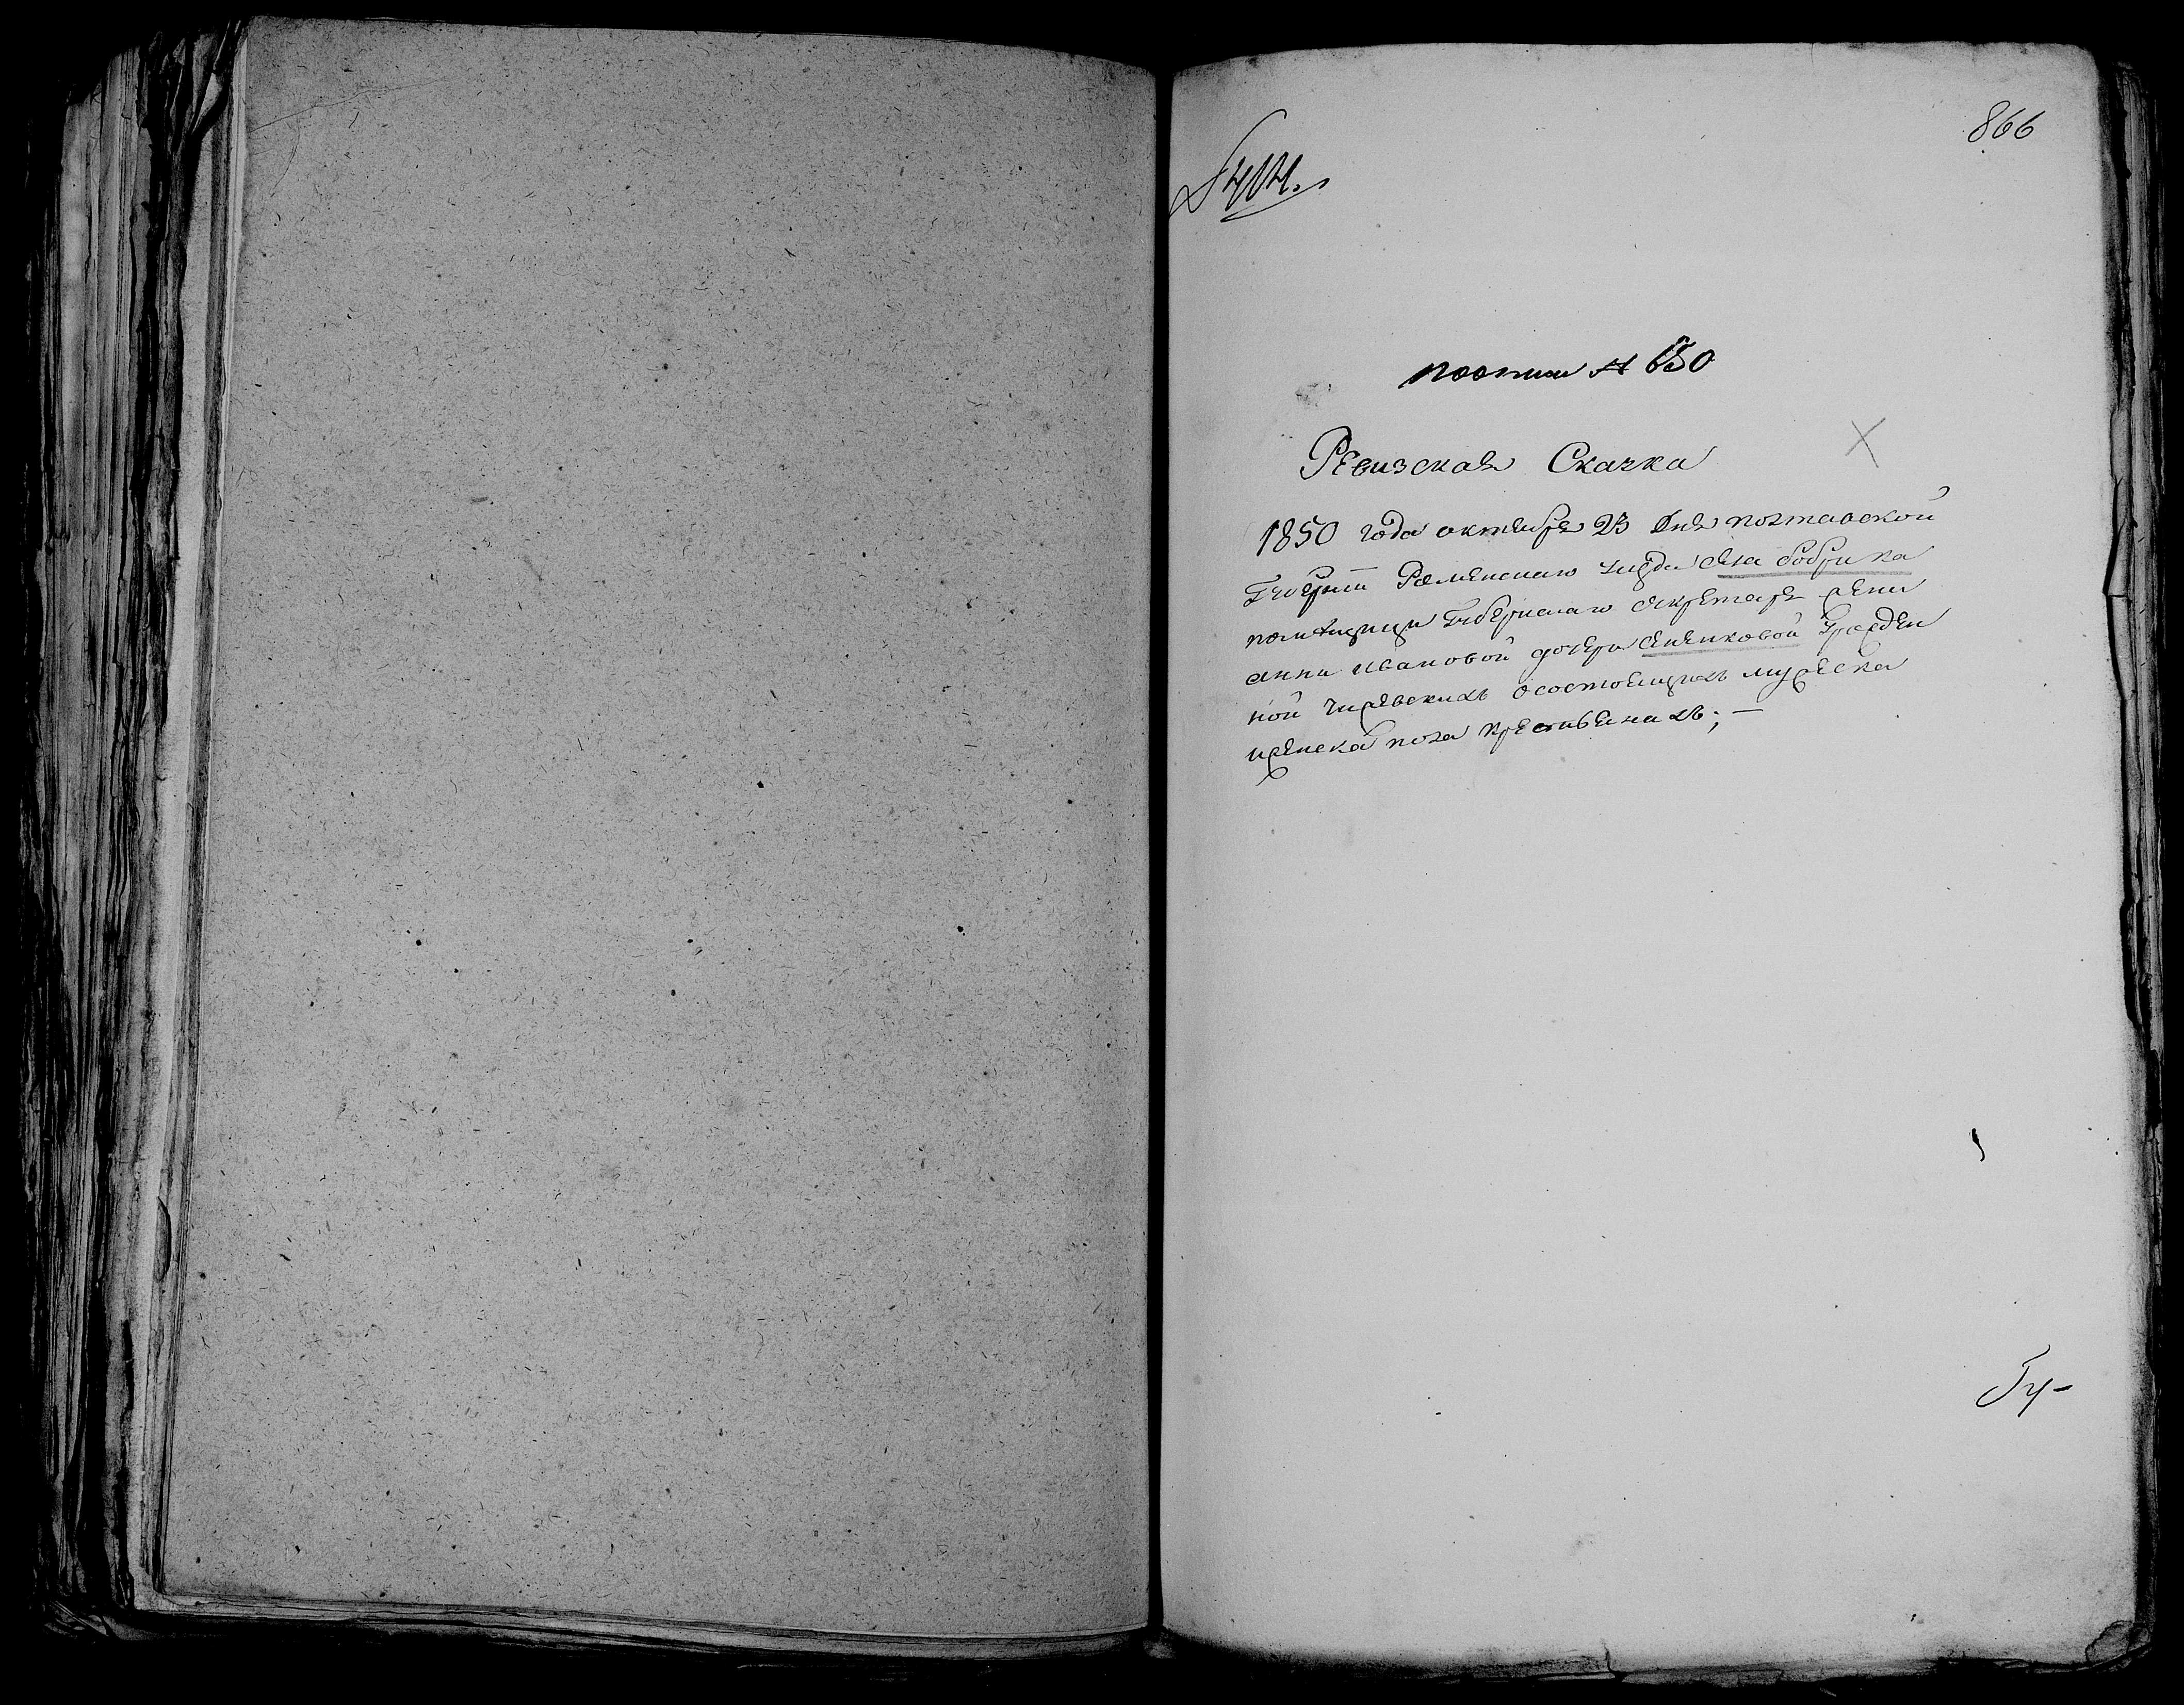 866
поописи № 650
Ревизская Сказка
1850 года октября 23 дня полтавской
Губернии Роменскаго уезда села бобрика
помещици Губернскаго секретаря
анни ивановой дочери сененковой урожден
ной чиревских осостоящих мужеска
иженска пола крестьянахъ; —